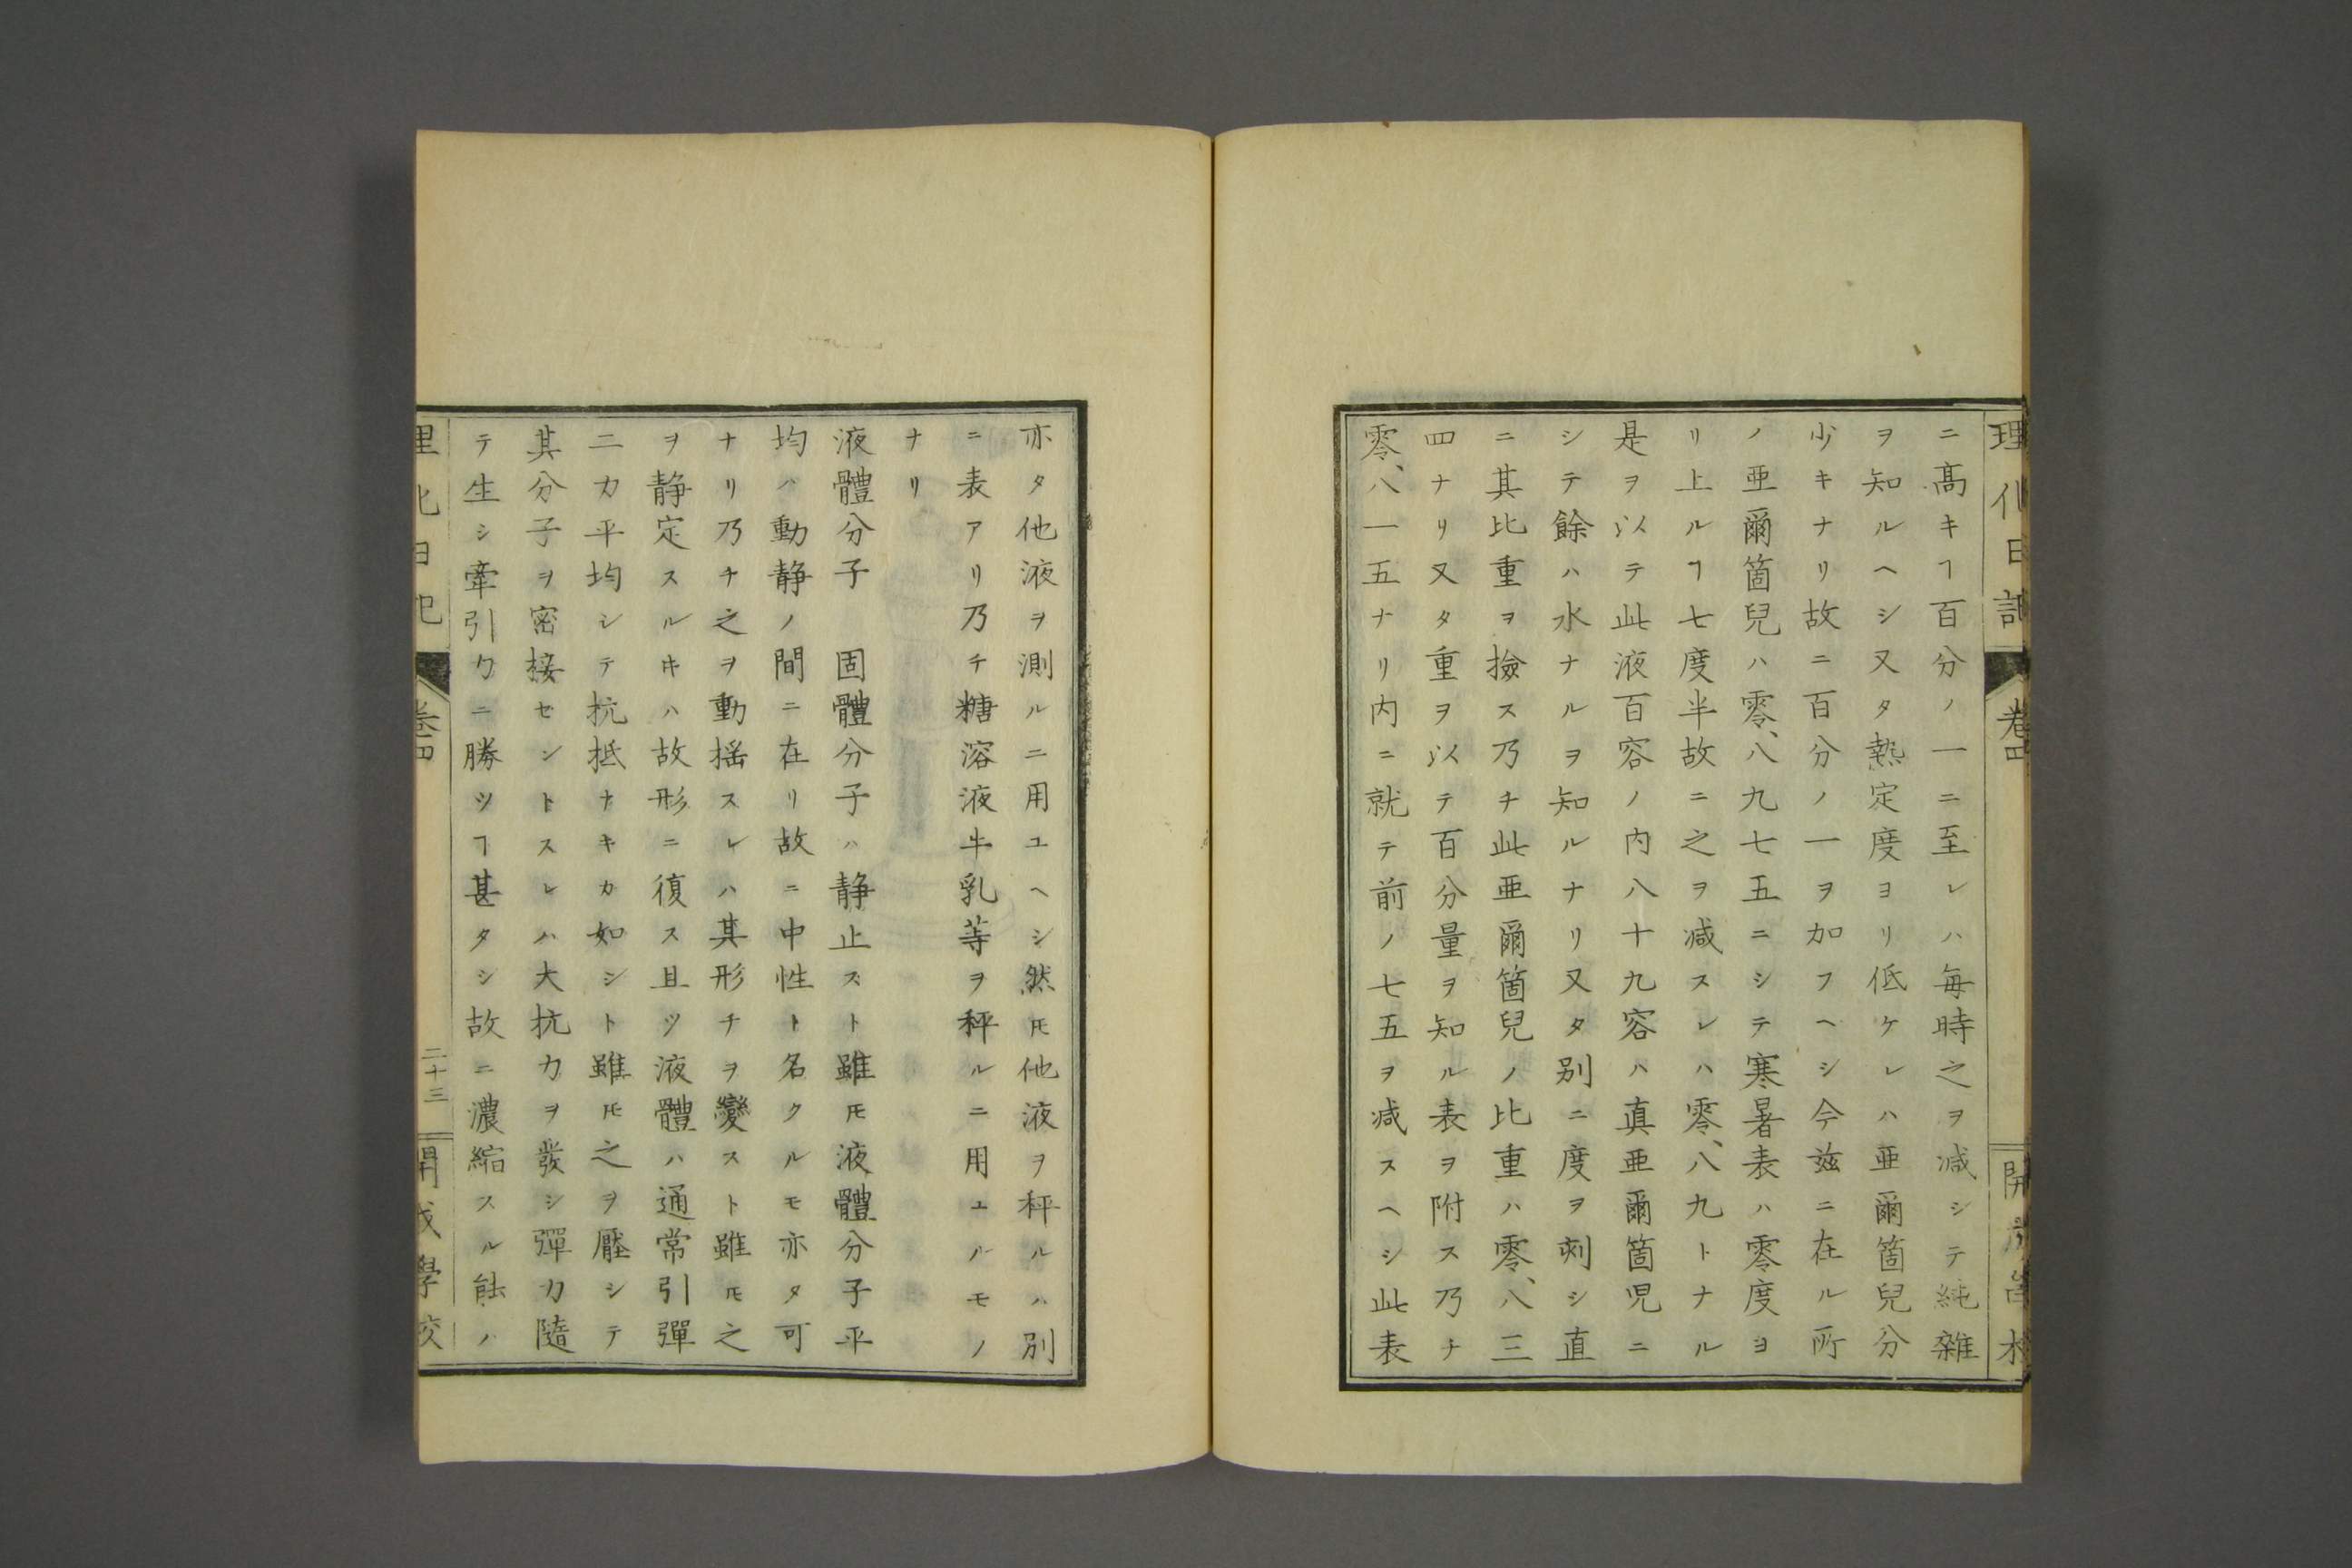 理化日記 巻四 開成學校
ニ髙キヿ百分ノ一ニ至レハ毎時之ヲ減シテ純雜
ヲ知ルヘシ又タ熱定度ヨリ低ケレハ亜爾箇兒分
少キナリ故ニ百分ノ一ヲ加フヘシ今茲ニ在ル所
ノ亜爾箇兒ハ零、八九七五ニシテ寒暑表ハ零度ヨ
リ上ルヿ七度半故ニ之ヲ减スレハ零、八九トナル
是ヲ以テ此液百容ノ内八十九容ハ真亜爾箇児ニ
シテ餘ハ水ナルヲ知ルナリ又タ別ニ度ヲ刺シ直
ニ其比重ヲ撿ス乃チ此亜爾箇兒ノ比重ハ零、八三
四ナリ又タ重ヲ以テ百分量ヲ知ル表ヲ附ス乃チ
零、八一五ナリ内ニ就テ前ノ七五ヲ减スヘシ此表
亦タ他液ヲ測ルニ用ユヘシ然𪜈他液ヲ秤ルハ別
ニ表アリ乃チ糖溶液牛乳等ヲ秤ルニ用ユルモノ
ナリ
液體分子 固體分子ハ静止スト雖𪜈液體分子平
均ハ動静ノ間ニ在リ故ニ中性ト名クルモ亦タ可
ナリ乃チ之ヲ動揺スレハ其形チヲ變スト雖𪜈之
ヲ静定スルキハ故形ニ復ス且ツ液體ハ通常引彈
二力平均シテ抗抵ナキカ如シト雖𪜈之ヲ壓シテ
其分子ヲ密接セントスレハ大抗力ヲ發シ彈力隨
テ生シ牽引クニ勝ツヿ甚タシ故ニ濃縮スル能ハ
理化日記 巻四 二十三 開成學校